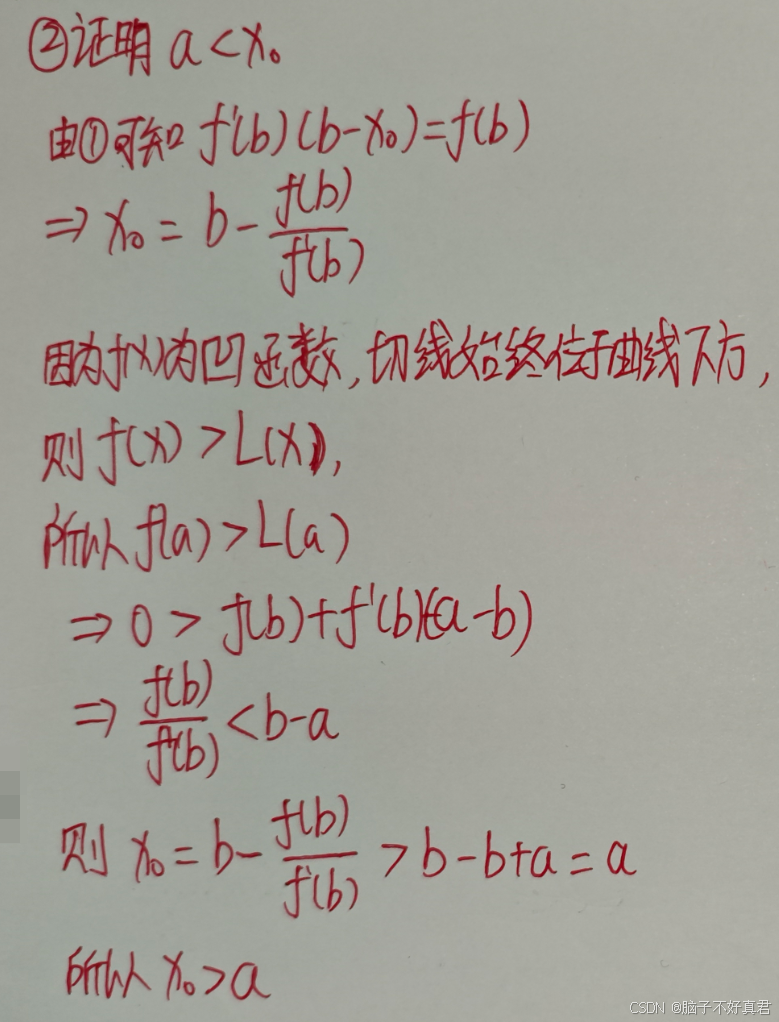 ②证明 a<x₀
由①可知 f'(b)(b-x₀)=f(b)
⇒ x₀ = b - f(b)/f'(b)
因为f(x)为凹函数,切线始终位于曲线下方,
则 f(x)>L(x),
所以 f(a)>L(a)
⇒ 0 > f(b)+f'(b)(a-b)
⇒ f(b)/f'(b) < b-a
则 x₀ = b - f(b)/f'(b) > b-b+a = a
所以 x₀>a
CSDN @脑子不好真君